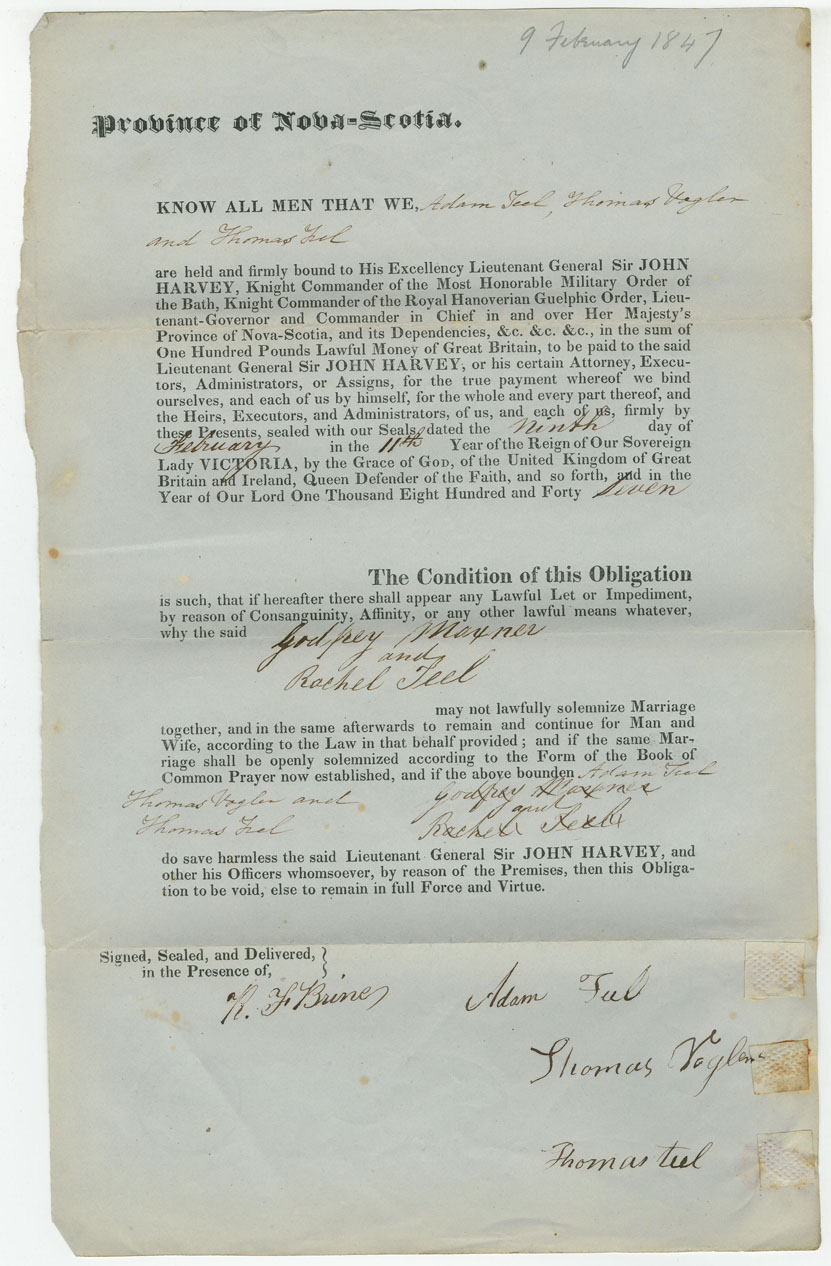 9 February 1847
Province of Nova-Scotia.
KNOW ALL MEN THAT WE, Adam Teel, Thomas Vogler
and Thomas Teel
are held and firmly bound to His Excellency Lieutenant General Sir JOHN
HARVEY, Knight Commander of the Most Honorable Military Order of
the Bath, Knight Commander of the Royal Hanoverian Guelphic Order, Lieu-
tenant-Governor and Commander in Chief in and over Her Majesty's
Province of Nova-Scotia, and its Dependencies, &c. &c. &c., in the sum of
One Hundred Pounds Lawful Money of Great Britain, to be paid to the said
Lieutenant General Sir JOHN HARVEY, or his certain Attorney, Execu-
tors, Administrators, or Assigns, for the true payment whereof we bind
ourselves, and each of us by himself, for the whole and every part thereof, and
the Heirs, Executors, and Administrators, of us, and each of us, firmly by
these Presents, sealed with our Seals, dated the Ninth day of
February in the 11th Year of the Reign of Our Sovereign
Lady VICTORIA, by the Grace of GOD, of the United Kingdom of Great
Britain and Ireland, Queen Defender of the Faith, and so forth, and in the
Year of Our Lord One Thousand Eight Hundred and Forty Seven
The Condition of this Obligation
is such, that if hereafter there shall appear any Lawful Let or Impediment,
by reason of Consanguinity, Affinity, or any other lawful means whatever,
why the said Godfrey Maxner
and
Rachel Teel
may not lawfully solemnize Marriage
together, and in the same afterwards to remain and continue for Man and
Wife, according to the Law in that behalf provided; and if the same Mar-
riage shall be openly solemnized according to the Form of the Book of
Common Prayer now established, and if the above bounden Adam Teel
Thomas Vogler and Godfrey Maxner
and
Thomas Teel Rachel Teel
do save harmless the said Lieutenant General Sir JOHN HARVEY, and
other his Officers whomsoever, by reason of the Premises, then this Obliga-
tion to be void, else to remain in full Force and Virtue.
Signed, Sealed, and Delivered,
in the Presence of,
R. F Brine
Adam Teel
Thomas Vogler
Thomas teel